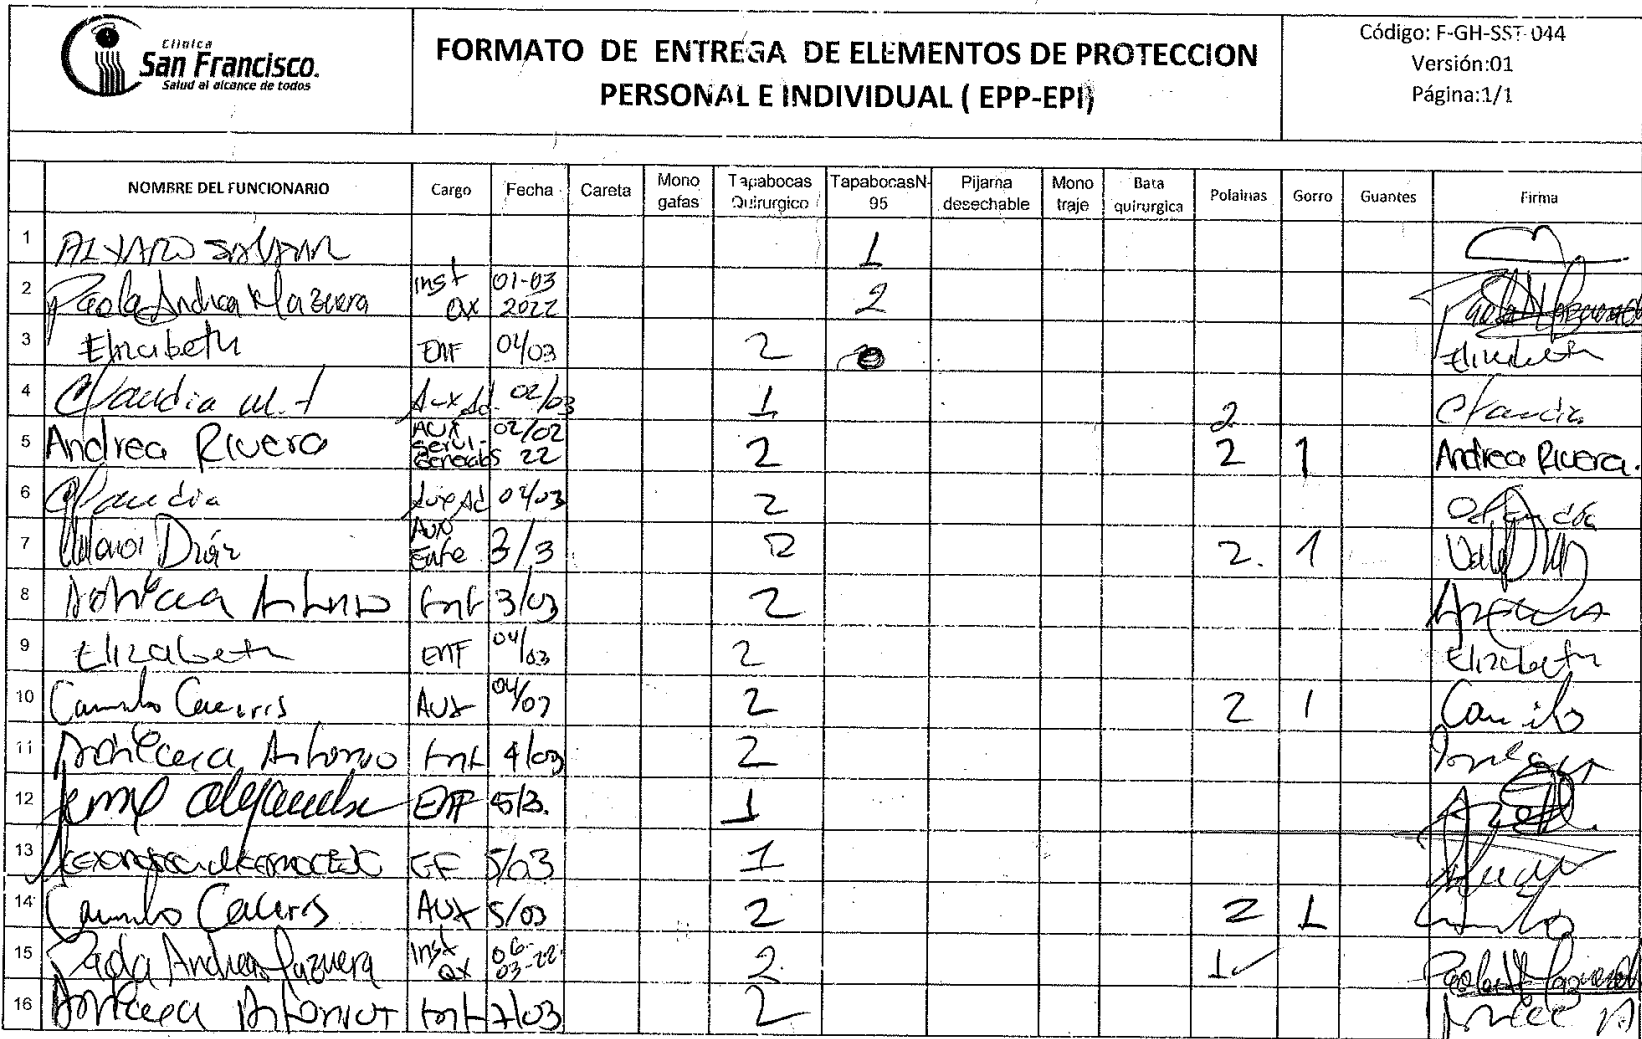 Clínica
San Francisco.
Salud al alcance de todos
FORMATO DE ENTREGA DE ELEMENTOS DE PROTECCION
PERSONAL E INDIVIDUAL ( EPP-EPI)
Código: F-GH-SST-044
Versión:01
Página:1/1
NOMBRE DEL FUNCIONARIO Cargo Fecha Careta Mono gafas Tapabocas Quirurgico TapabocasN-95 Pijama desechable Mono traje Bata quirurgica Polainas Gorro Guantes Firma
1 ALVARO 1
2 Paola Andrea Mazuera Inst Qx 01-03 2022 2 Paola Mazuera
3 Elizabeth Enf 2 Elizabeth
4 Claudia M. Aux Ad. 02/03 1 2 Claudia
5 Andrea Rivera Aux Servi- Generales 02/02 22 2 2 1 Andrea Rivera.
6 Claudia Aux Ad 2 Claudia
7 Díaz Aux Enfe 3/3 2 2. 1
8 Enf 3/03 2
9 Elizabeth Enf 04/03 2 Elizabeth
10 Camilo Caceres Aux 04/03 2 2 1 Camilo
11 Antonio Enf 4/03 2
12 Enf 5/3. 1
13 5/03 1
14 Camilo Caceres Aux 5/03 2 2 1 Camilo
15 Paola Andrea Mazuera Inst Qx 06-03-22 2 1 Paola Mazuera
16 Enf 7/03 2